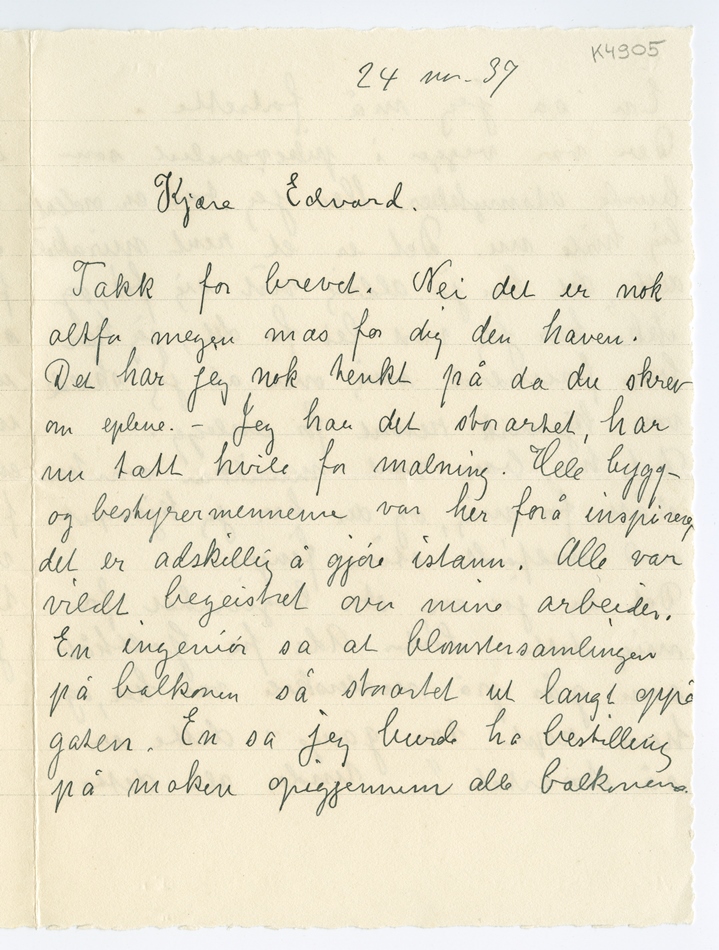 K4905
24 nov. 37
Kjære Edvard.
Takk for brevet. Nei det er nok
altfor megen mas for dig den haven.
Det har jeg nok tenkt på da du skrev
om eplene. – Jeg har det storartet, har
nu tatt hvile for malning. Hele bygg-
og bestyrermennene var her forå inspisere,
det er adskillig å gjøre istann. Alle var
vildt begeistret over mine arbeider.
En ingeniør sa at blomstersamlingen
på balkonen så storartet ut langt oppå
gaten. En sa jeg burde ha bestilling
på maken opigjennem alle balkonene.